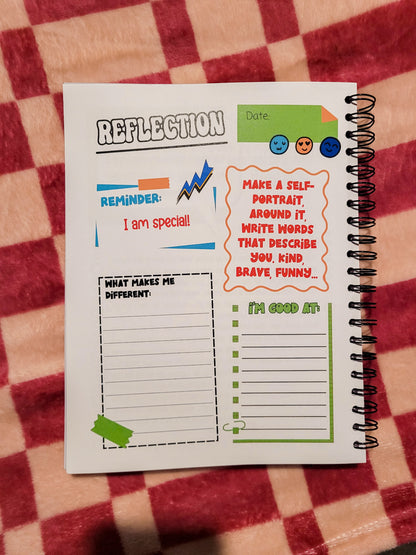 REFLECTION
Date:
REMINDER:
I am special!
MAKE A SELF-
PORTRAIT,
AROUND IT,
WRITE WORDS
THAT DESCRIBE
YOU, KIND,
BRAVE, FUNNY...
WHAT MAKES ME
DIFFERENT:
I'M GOOD AT: